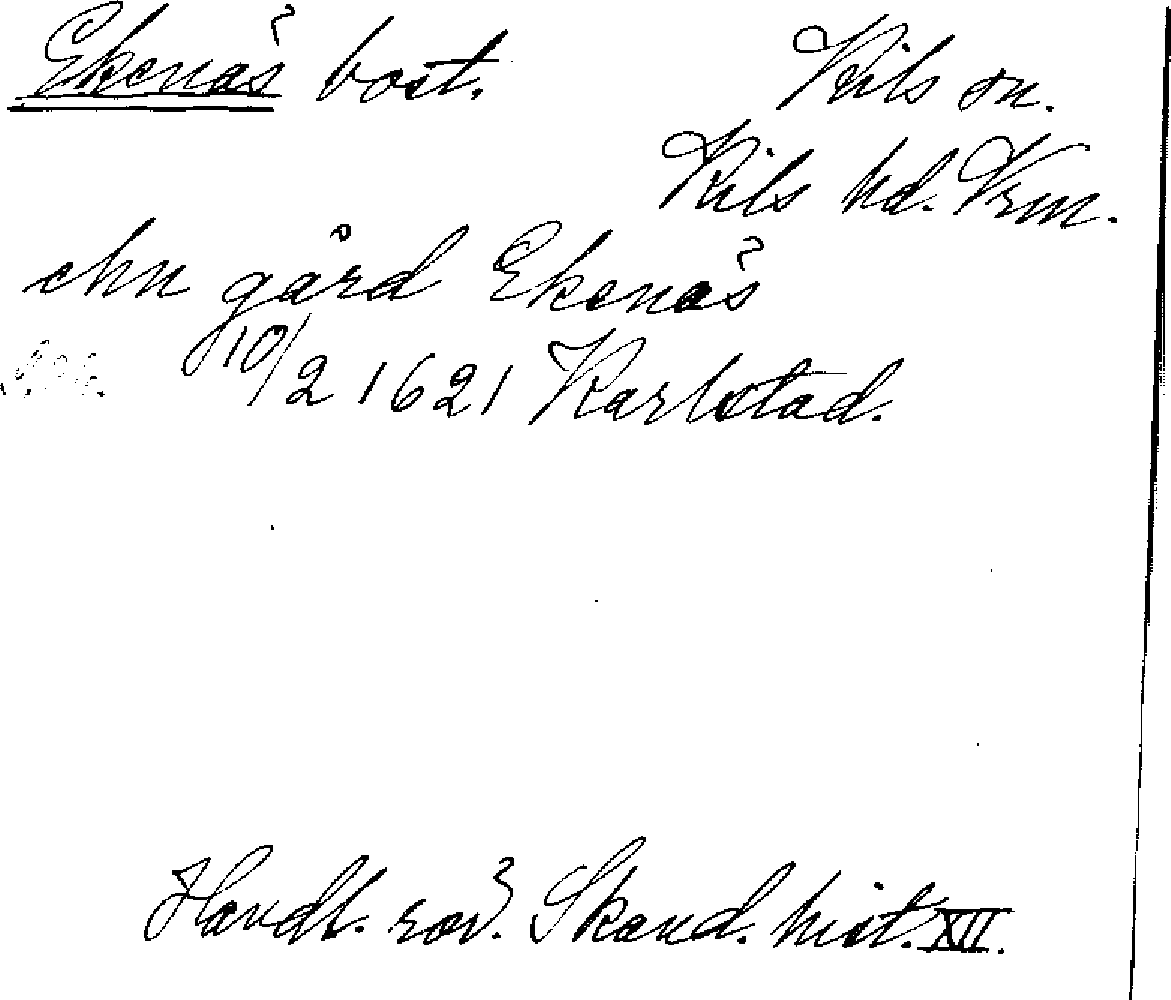 Ekenäs bost. Kils sn.
Kils hd. Vrm.
ehn gård Ekenäs
10/2 1621 Karlstad.
Handl. rör. Skand. hist. XII.